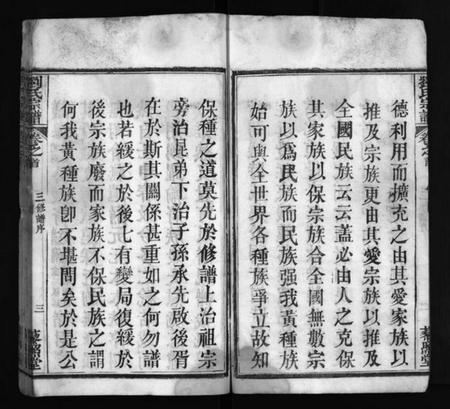 德利用而擴充之由其愛家族以
推及宗族更由其愛宗族以推及
全國民族云云蓋必由人之克保
其家族以保宗族合全國無數宗
族以為民族而民族强我黃種族
始可與全世界各種族爭立故知
保種之道莫先於修譜上治祖宗
旁治昆弟下治子孫承先啟後胥
在於斯其關係甚重如之何勿譜
也若緩之於後七有變局復緩於
後宗族廢而家族不保民族之謂
何我黃種族卽不堪問矣於是公
劉氏宗譜
卷之首
三修譜序
三
藜照堂